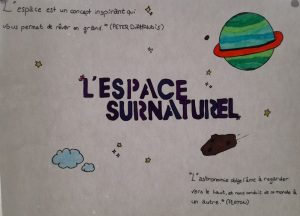 "L'espace est un concept inspirant qui
vous permet de rêver en grand." (PETER DIAMANDIS)
L'ESPACE
SURNATUREL
"L'astronomie oblige l'âme à regarder
vers le haut, et nous conduit de ce monde à
un autre." (PLATON)